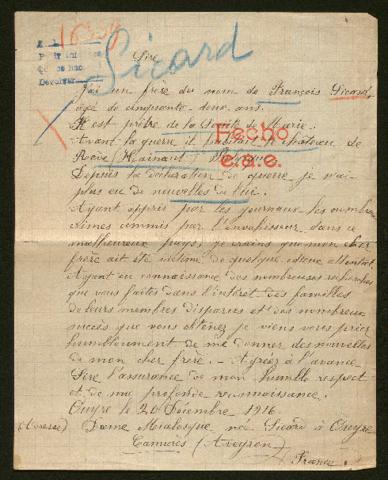 Sicard
Sire
J'ai un frère du nom de François Sicard,
âgé de cinquante-deux ans.
Il est prêtre de la Société de Marie.
Avant la guerre il habitait le château de
Rêve (Hainaut) Belgique
Fecho
e.a.e.
Depuis la déclaration de guerre je n'ai
plus eu de nouvelles de lui.
Ayant appris par les journaux les nombreux
crimes commis par l'envahisseur dans ce
malheureux pays, je crains que mon cher
frère ait été victime de quelque odieux attentat.
Ayant eu connaissance des nombreuses recherches
que vous faites dans l'intérêt des familles
de leurs membres disparus et des nombreux
succès que vous obtenez je viens vous prier
humblement de me donner des nouvelles
de mon cher frère. - Agréez à l'avance
Sire l'assurance de mon humble respect
et de ma profonde reconnaissance.
Ouyre le 20 Décembre 1916.
Dame Mialosque née Sicard à Ouyre
Camarès (Aveyron)
France